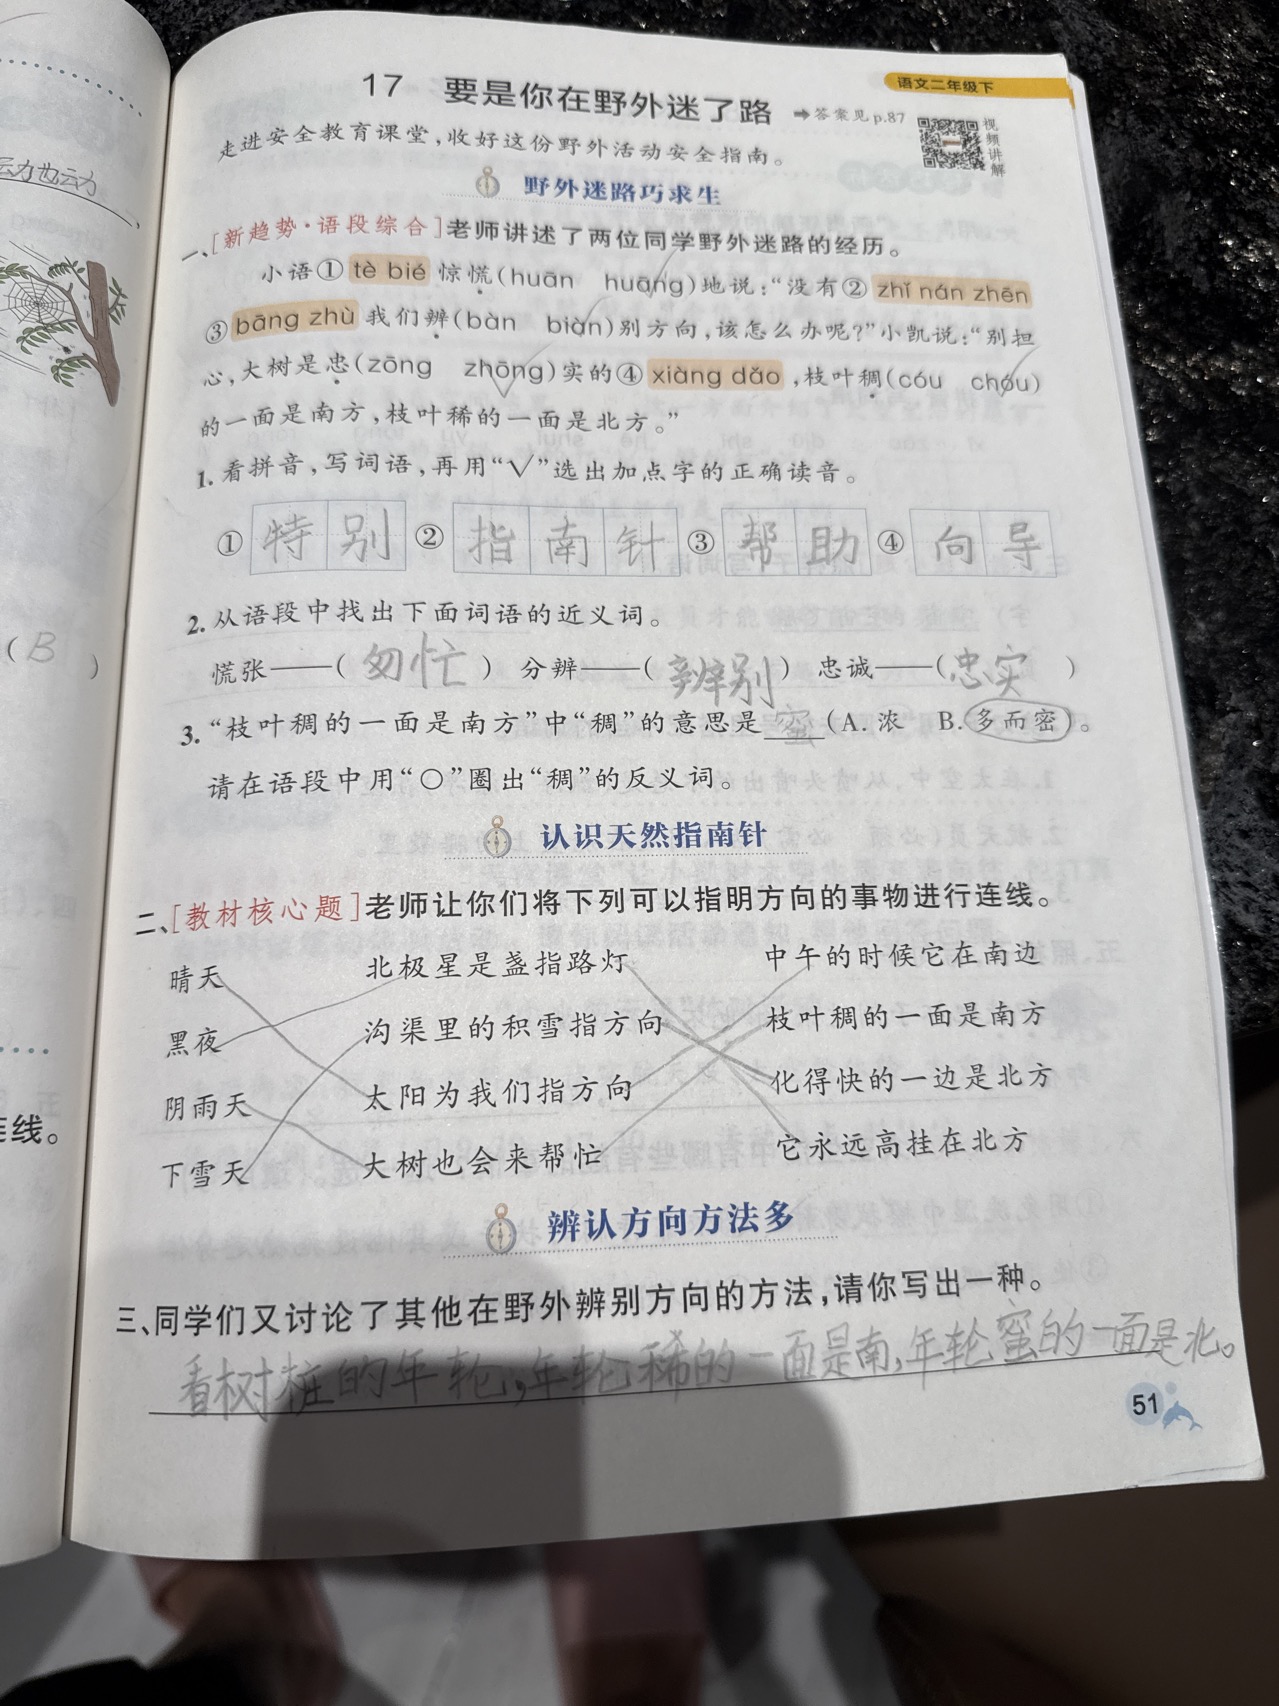 语文二年级下
17 要是你在野外迷了路 ➡答案见p.87
视频讲解
走进安全教育课堂,收好这份野外活动安全指南。
野外迷路巧求生
一、[新趋势·语段综合]老师讲述了两位同学野外迷路的经历。
小语① tè bié 惊慌(huān huāng)地说:“没有② zhǐ nán zhēn
③ bāng zhù 我们辨(bàn biàn)别方向,该怎么办呢?”小凯说:“别担
心,大树是忠(zōng zhōng)实的④ xiàng dǎo ,枝叶稠(cóu chóu)
的一面是南方,枝叶稀的一面是北方。”
1. 看拼音,写词语,再用“√”选出加点字的正确读音。
① 特别 ② 指南针 ③ 帮助 ④ 向导
2. 从语段中找出下面词语的近义词。
慌张——( 匆忙 ) 分辨——( 辨别 ) 忠诚——( 忠实 )
3. “枝叶稠的一面是南方”中“稠”的意思是 蜜 (A.浓 B.多而密)。
请在语段中用“○”圈出“稠”的反义词。
认识天然指南针
二、[教材核心题]老师让你们将下列可以指明方向的事物进行连线。
晴天 北极星是盏指路灯 中午的时候它在南边
黑夜 沟渠里的积雪指方向 枝叶稠的一面是南方
阴雨天 太阳为我们指方向 化得快的一边是北方
下雪天 大树也会来帮忙 它永远高挂在北方
辨认方向方法多
三、同学们又讨论了其他在野外辨别方向的方法,请你写出一种。
看树桩的年轮,年轮稀的一面是南,年轮蜜的一面是北。
51
云力也云力
( B )
连线。